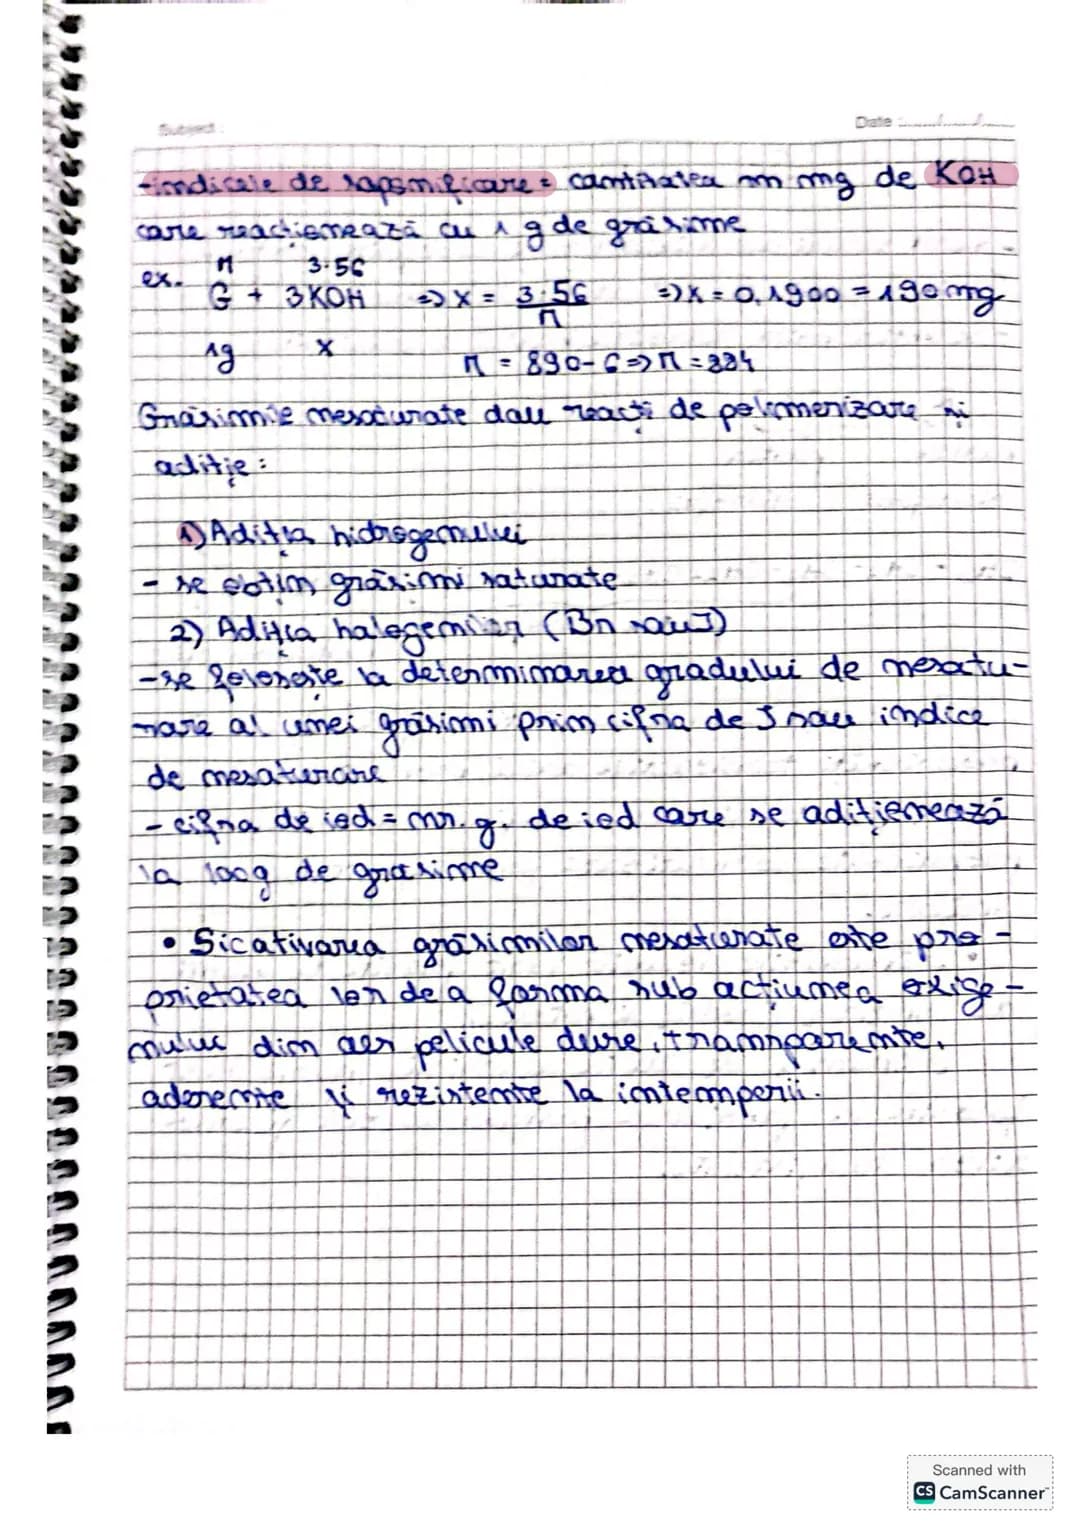 Subject :
Date : ....../....../......
-indicele de saponificare = cantitatea în mg de KOH
care reacționează cu 1 g de grăsime
M 3·56
ex. G + 3KOH => x = 3·56 / M => x = 0,1900 = 190 mg
1g x M = 890-6 => M = 884
Grăsimile nesaturate dau reacți de polimerizare și
adiție :
1) Adiția hidrogenului
- se obțin grăsimi saturate
2) Adiția halogenilor (Br sau I)
- se folosește la determinarea gradului de nesatu-
rare al unei grăsimi prin cifra de I sau indice
de nesaturare
- cifra de iod = nr. g. de iod care se adiționează
la 100g de grasime
• Sicativarea grăsimilor nesaturate este pro-
prietatea lor de a forma sub acțiunea oxige-
nului din aer pelicule dure, transparente,
aderente și rezistente la intemperii.
Scanned with
CS CamScanner